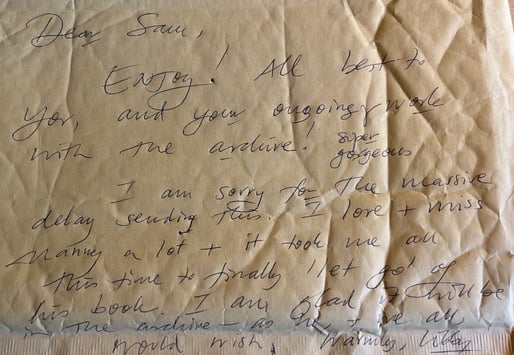 Dear Sam,
Enjoy! All best to
you, and your ongoing work
with the archive! super
gorgeous
I am sorry for the massive
delay sending this. I love + miss
Manny a lot + it took me all
this time to finally 'let go' of
his book. I am glad it will be
in the archive - as he + we all
would wish. Warmly, Libby